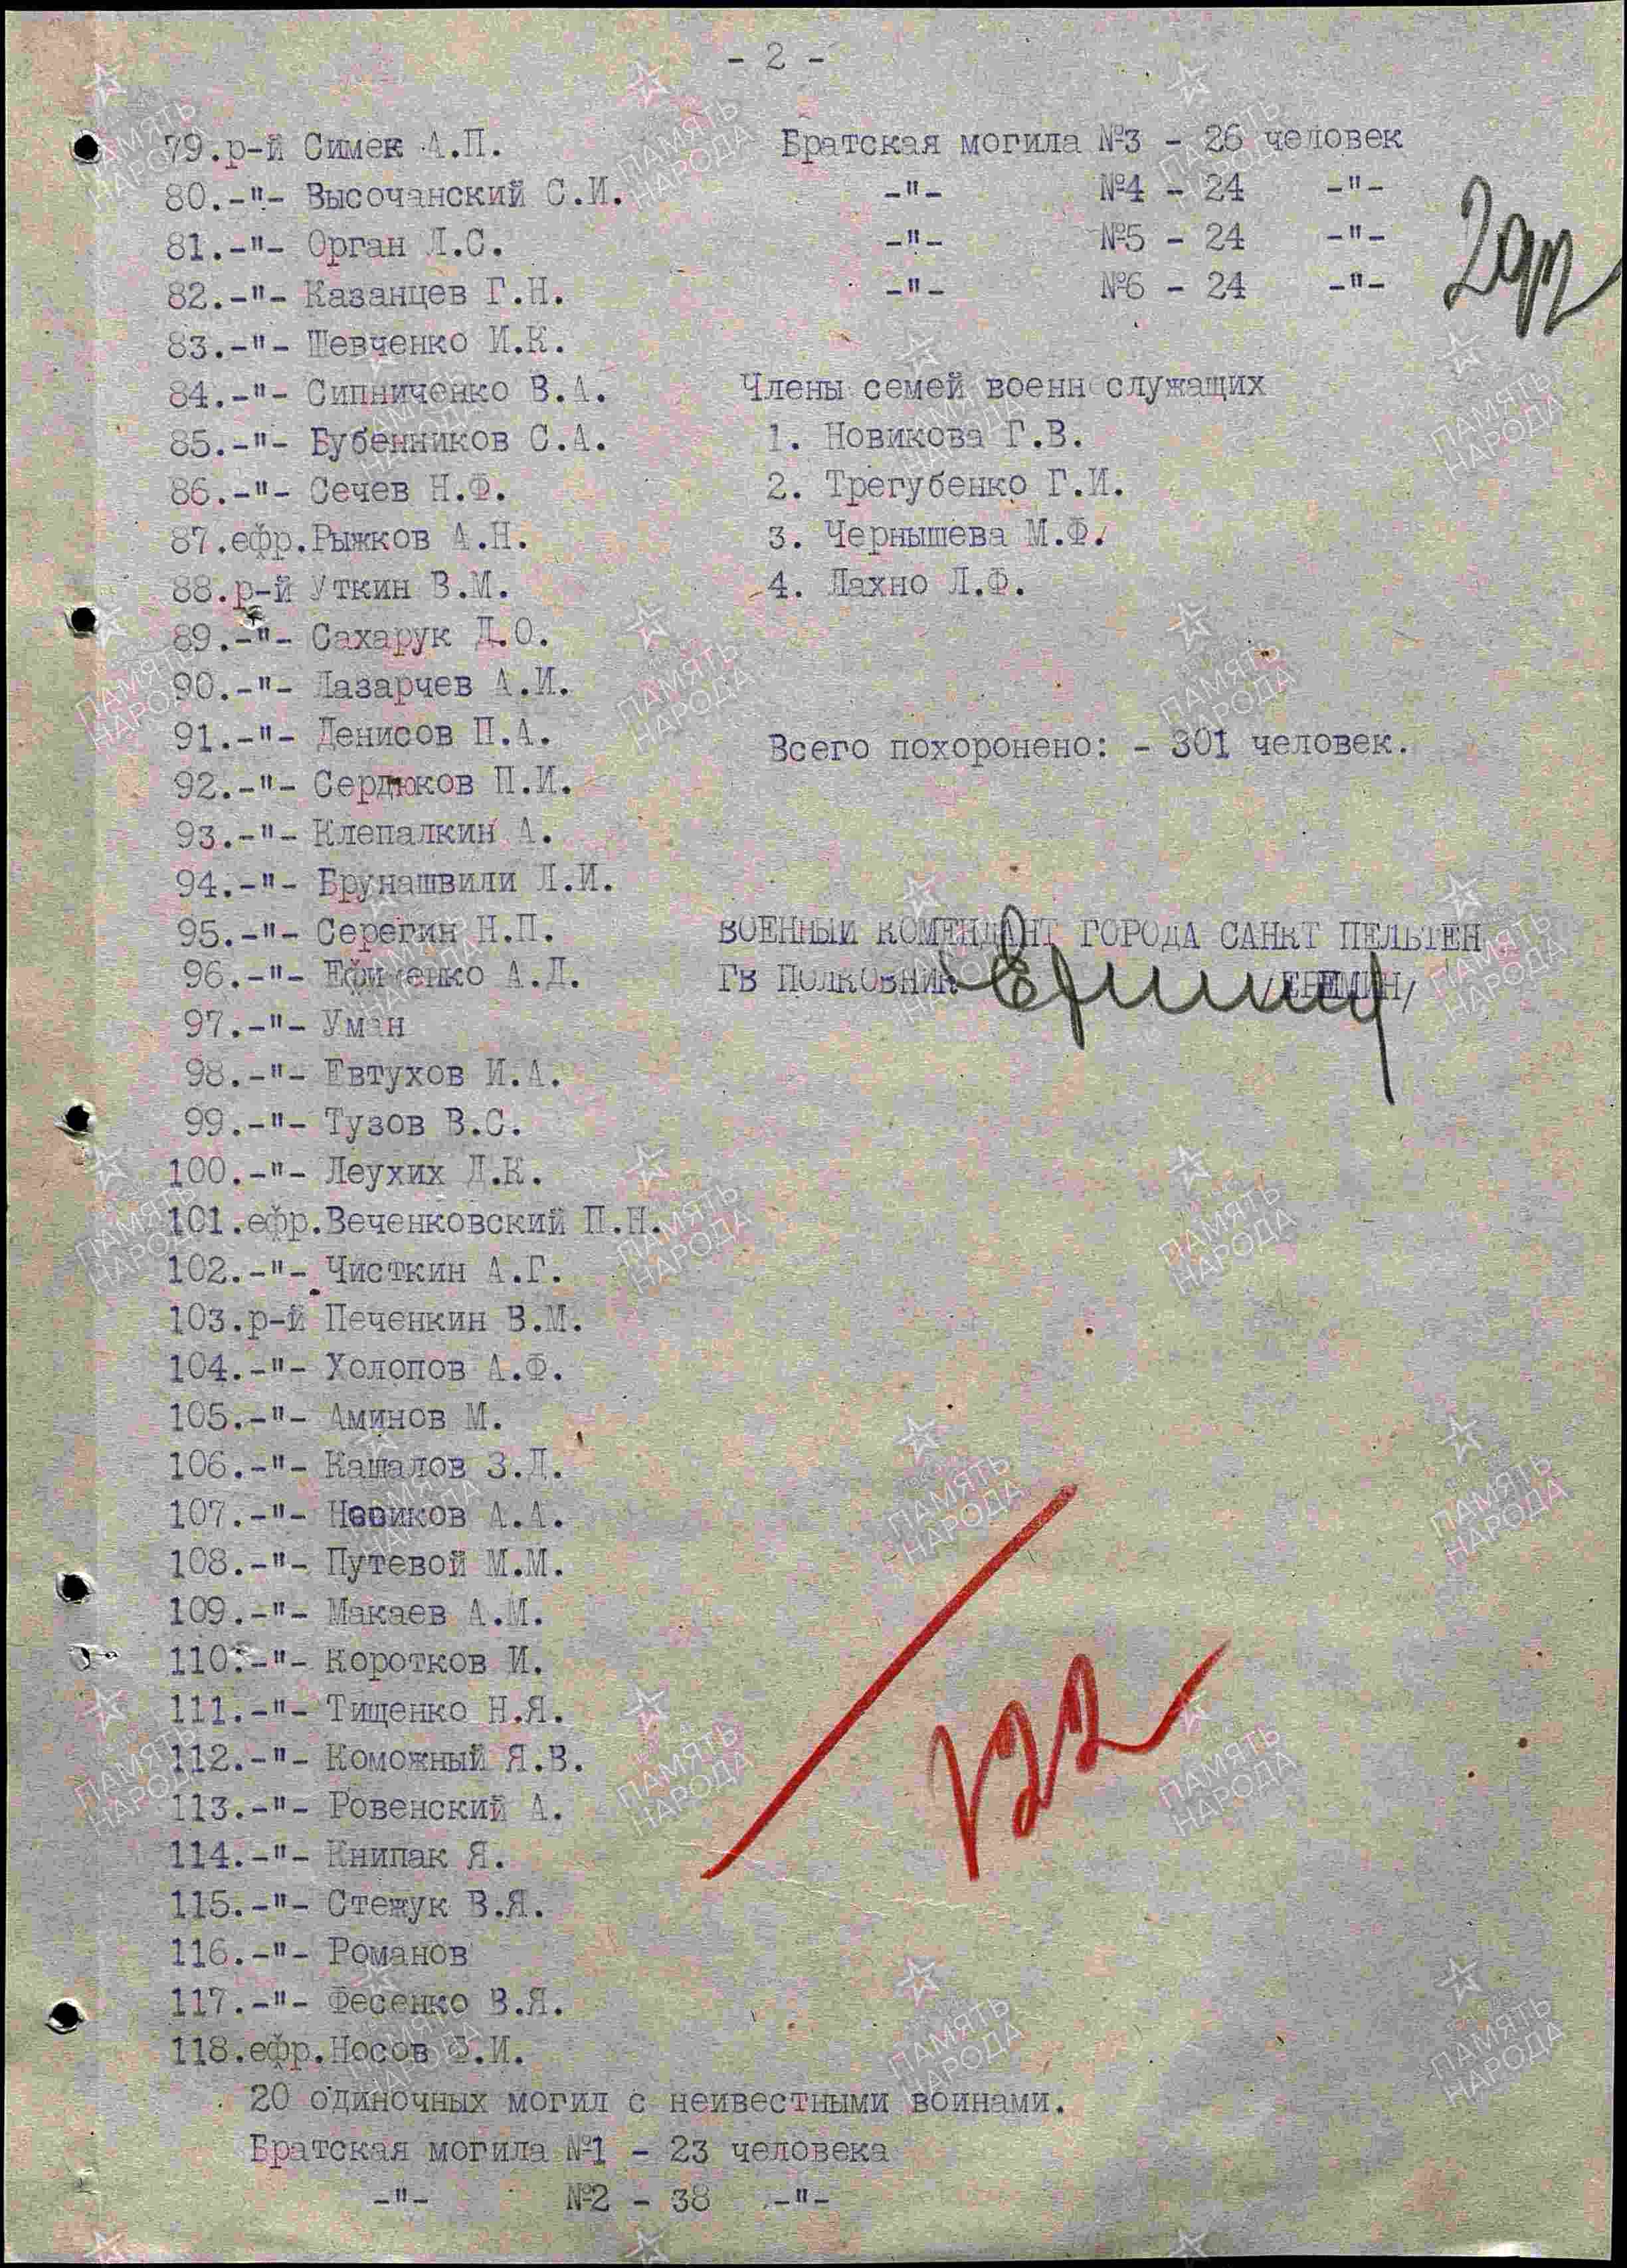 - 2 -
79.р-й Симек А.П.
80.-"- Высочанский С.И.
81.-"- Орган Л.С.
82.-"- Казанцев Г.Н.
83.-"- Шевченко И.К.
84.-"- Сипниченко В.А.
85.-"- Бубенников С.А.
86.-"- Сечев Н.Ф.
87.ефр.Рыжков А.Н.
88.р-й Уткин В.М.
89.-"- Сахарук Д.О.
90.-"- Лазарчев А.И.
91.-"- Денисов П.А.
92.-"- Сердюков П.И.
93.-"- Клепалкин А.
94.-"- Брунашвили Л.И.
95.-"- Серегин Н.П.
96.-"- Ефименко А.Д.
97.-"- Уман
98.-"- Евтухов И.А.
99.-"- Тузов В.С.
100.-"- Леухих Д.К.
101.ефр.Веченковский П.Н.
102.-"- Чисткин А.Г.
103.р-й Печенкин В.М.
104.-"- Холопов А.Ф.
105.-"- Аминов М.
106.-"- Кашалов З.Д.
107.-"- Новиков А.А.
108.-"- Путевой М.М.
109.-"- Макаев А.М.
110.-"- Коротков И.
111.-"- Тищенко Н.Я.
112.-"- Коможный Я.В.
113.-"- Ровенский А.
114.-"- Книпак Я.
115.-"- Стежук В.Я.
116.-"- Романов
117.-"- Фесенко В.Я.
118.ефр.Носов Ф.И.
20 одиночных могил с неивестными воинами.
Братская могила №1 - 23 человека
-"- №2 - 38 -"-
Братская могила №3 - 26 человек
-"- №4 - 24 -"-
-"- №5 - 24 -"-
-"- №6 - 24 -"-
Члены семей военнослужащих
1. Новикова Г.В.
2. Трегубенко Г.И.
3. Чернышева М.Ф.
4. Лахно Л.Ф.
Всего похоронено: - 301 человек.
ВОЕННЫЙ КОМЕНДАНТ ГОРОДА САНКТ ПЕЛЬТЕН
ГВ ПОЛКОВНИК /ЕРЕМИН/
ПАМЯТЬ НАРОДА